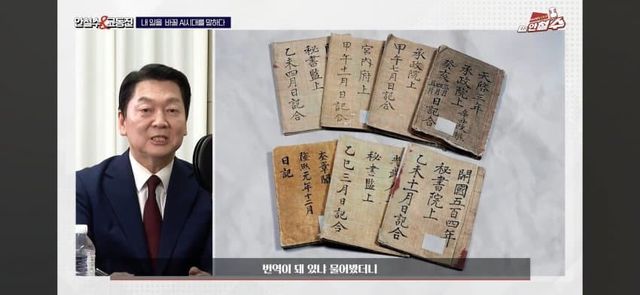 안철수&고동진
내 일을 바꿀 AI시대를 말하다
안철수
秘書監上
乙未四月日記合
宮內府上
甲午十一月日記合
承政院上
甲午七月日記合
天啓三年
承政院上
癸亥
日記合
奎章閣
隆熙元年十二月
日記
秘書監上
乙巳三月日記合
開國五百四年
秘書院上
乙未十一月日記合
번역이 돼 있나 물어봤더니